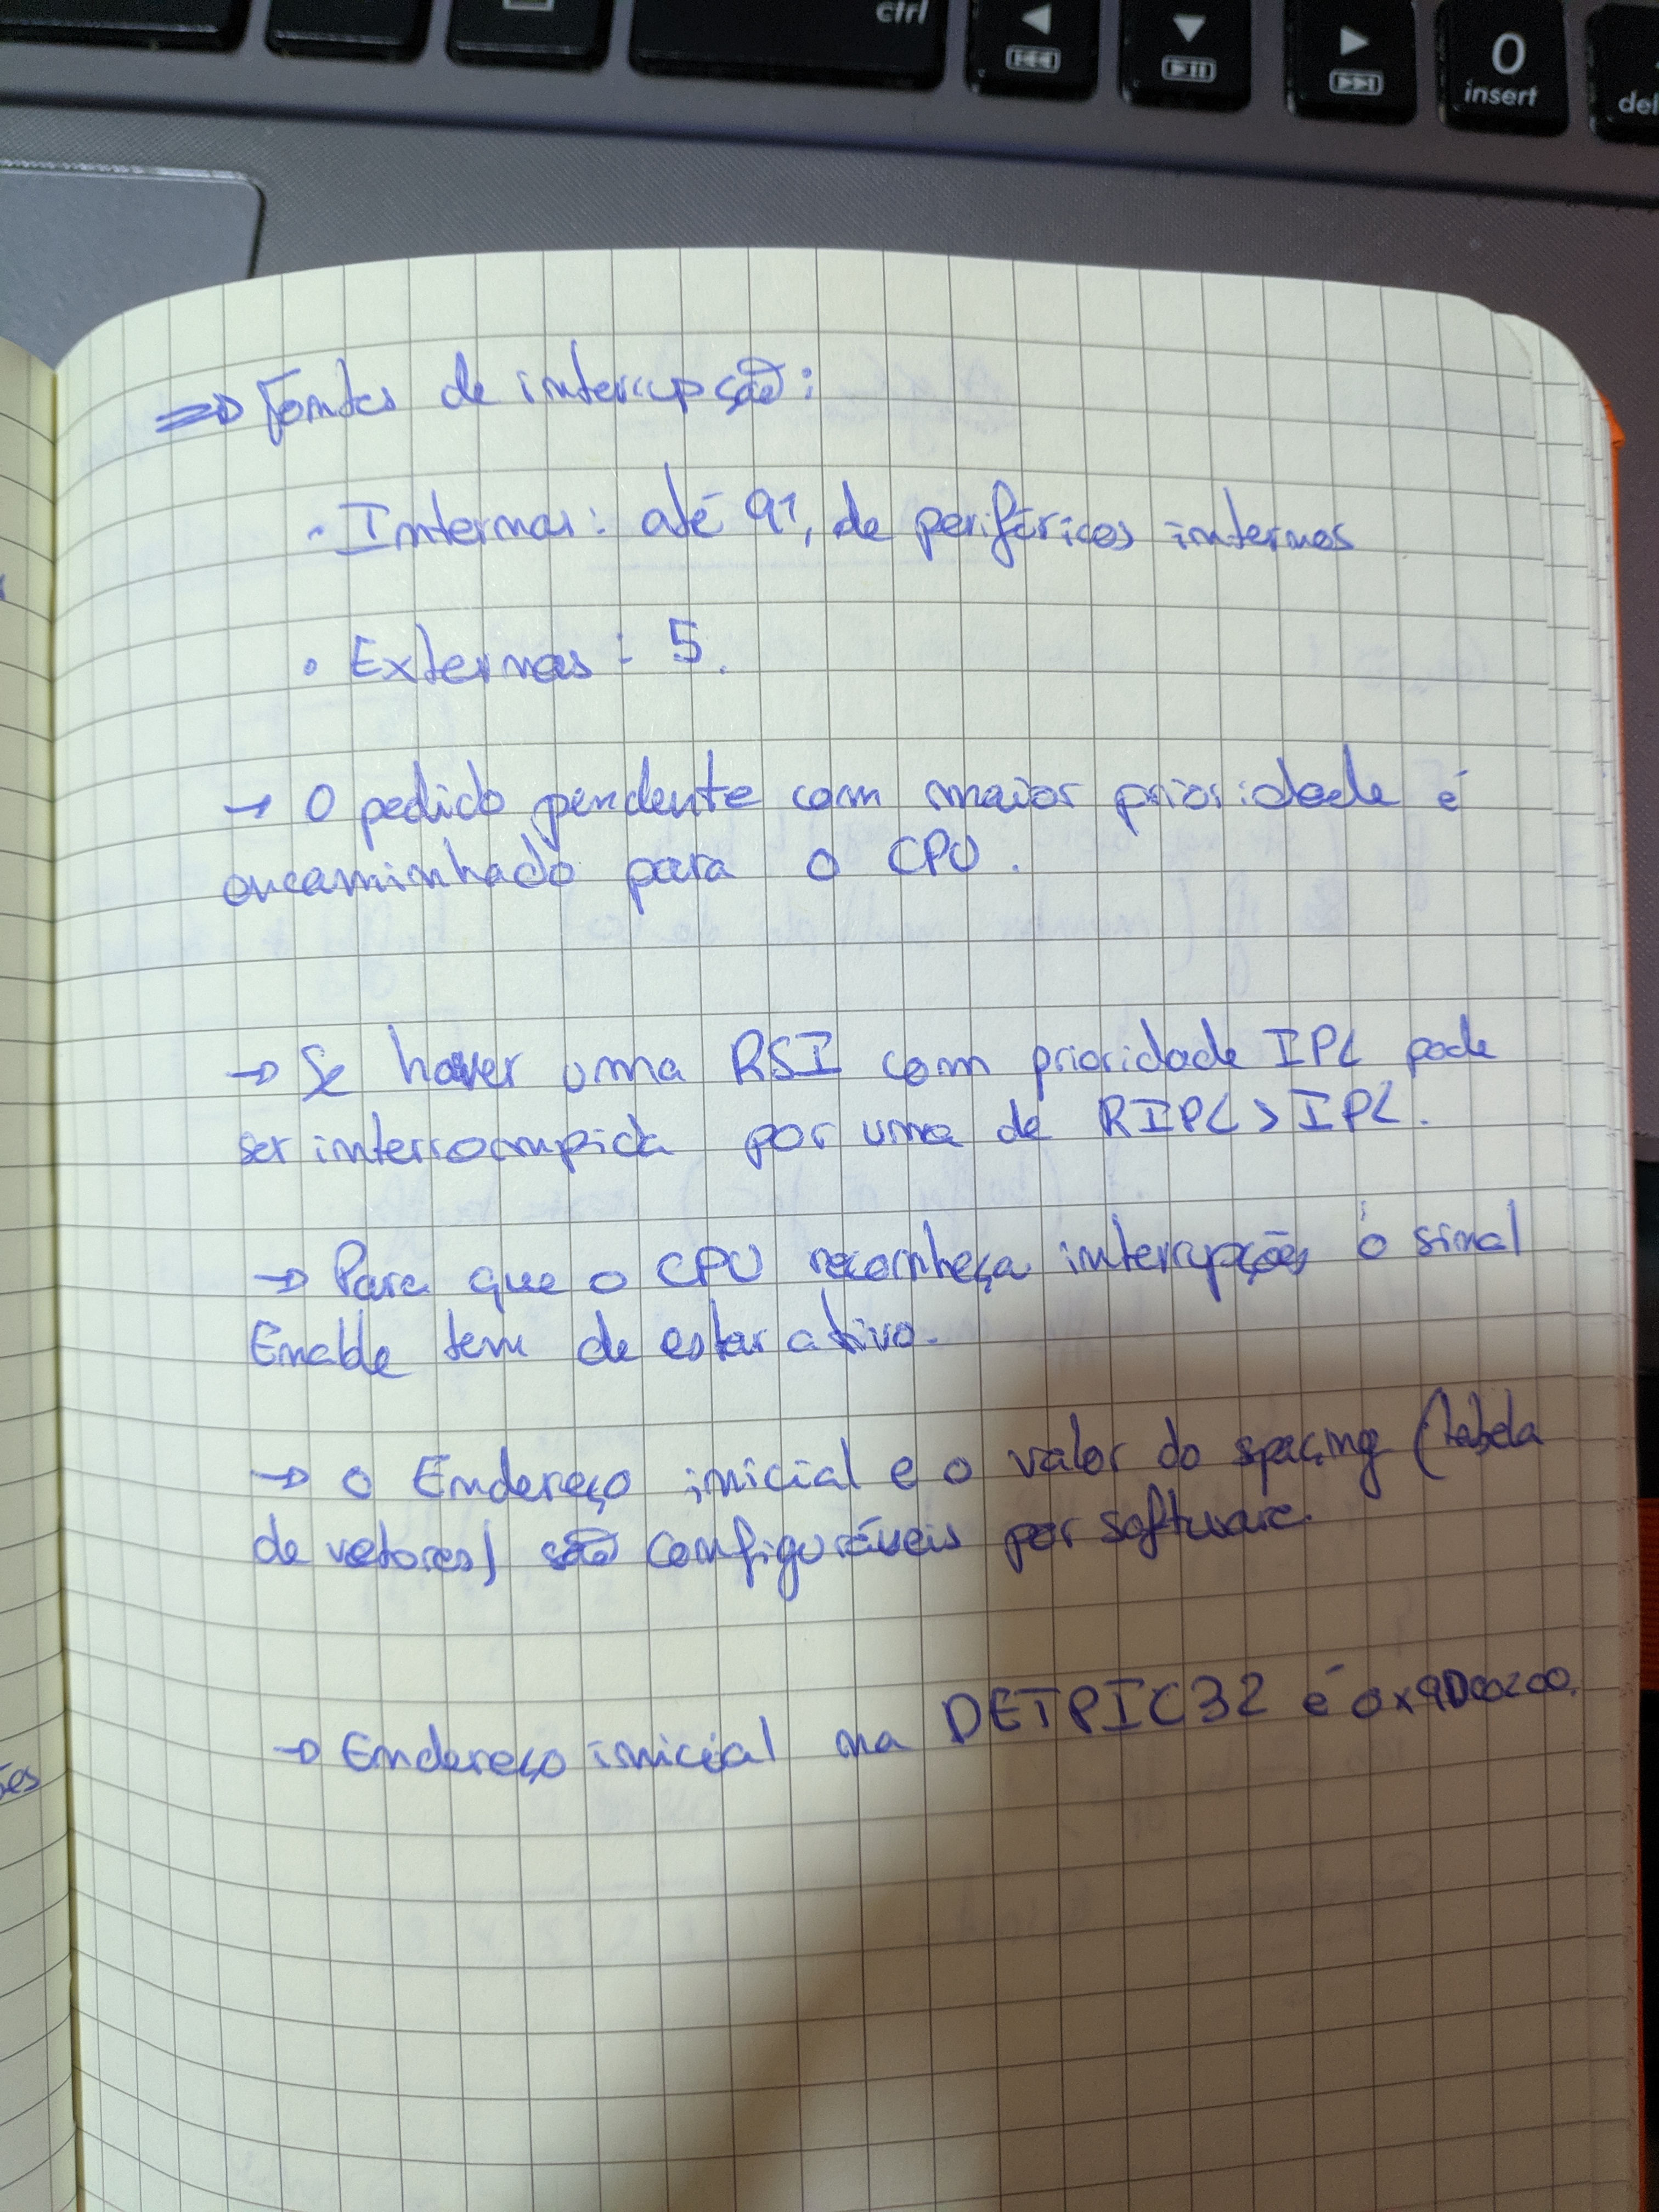 ctrl
0
insert
del
=> Fontes de interrupção:
· Internas: até 91, de periféricos internos
• Externas: 5.
→ O pedido pendente com maior prioridade é
encaminhado para o CPU.
→ Se haver uma RSI com prioridade IPL pode
ser interrompida por uma de RIPL > IPL.
→ Para que o CPU reconheça interrupções o sinal
Enable tem de estar ativo.
→ O Endereço inicial e o valor do spacing (tabela
de vetores) são configuráveis por software.
→ Endereço inicial na DETPIC32 é 0x9D000200.
ões